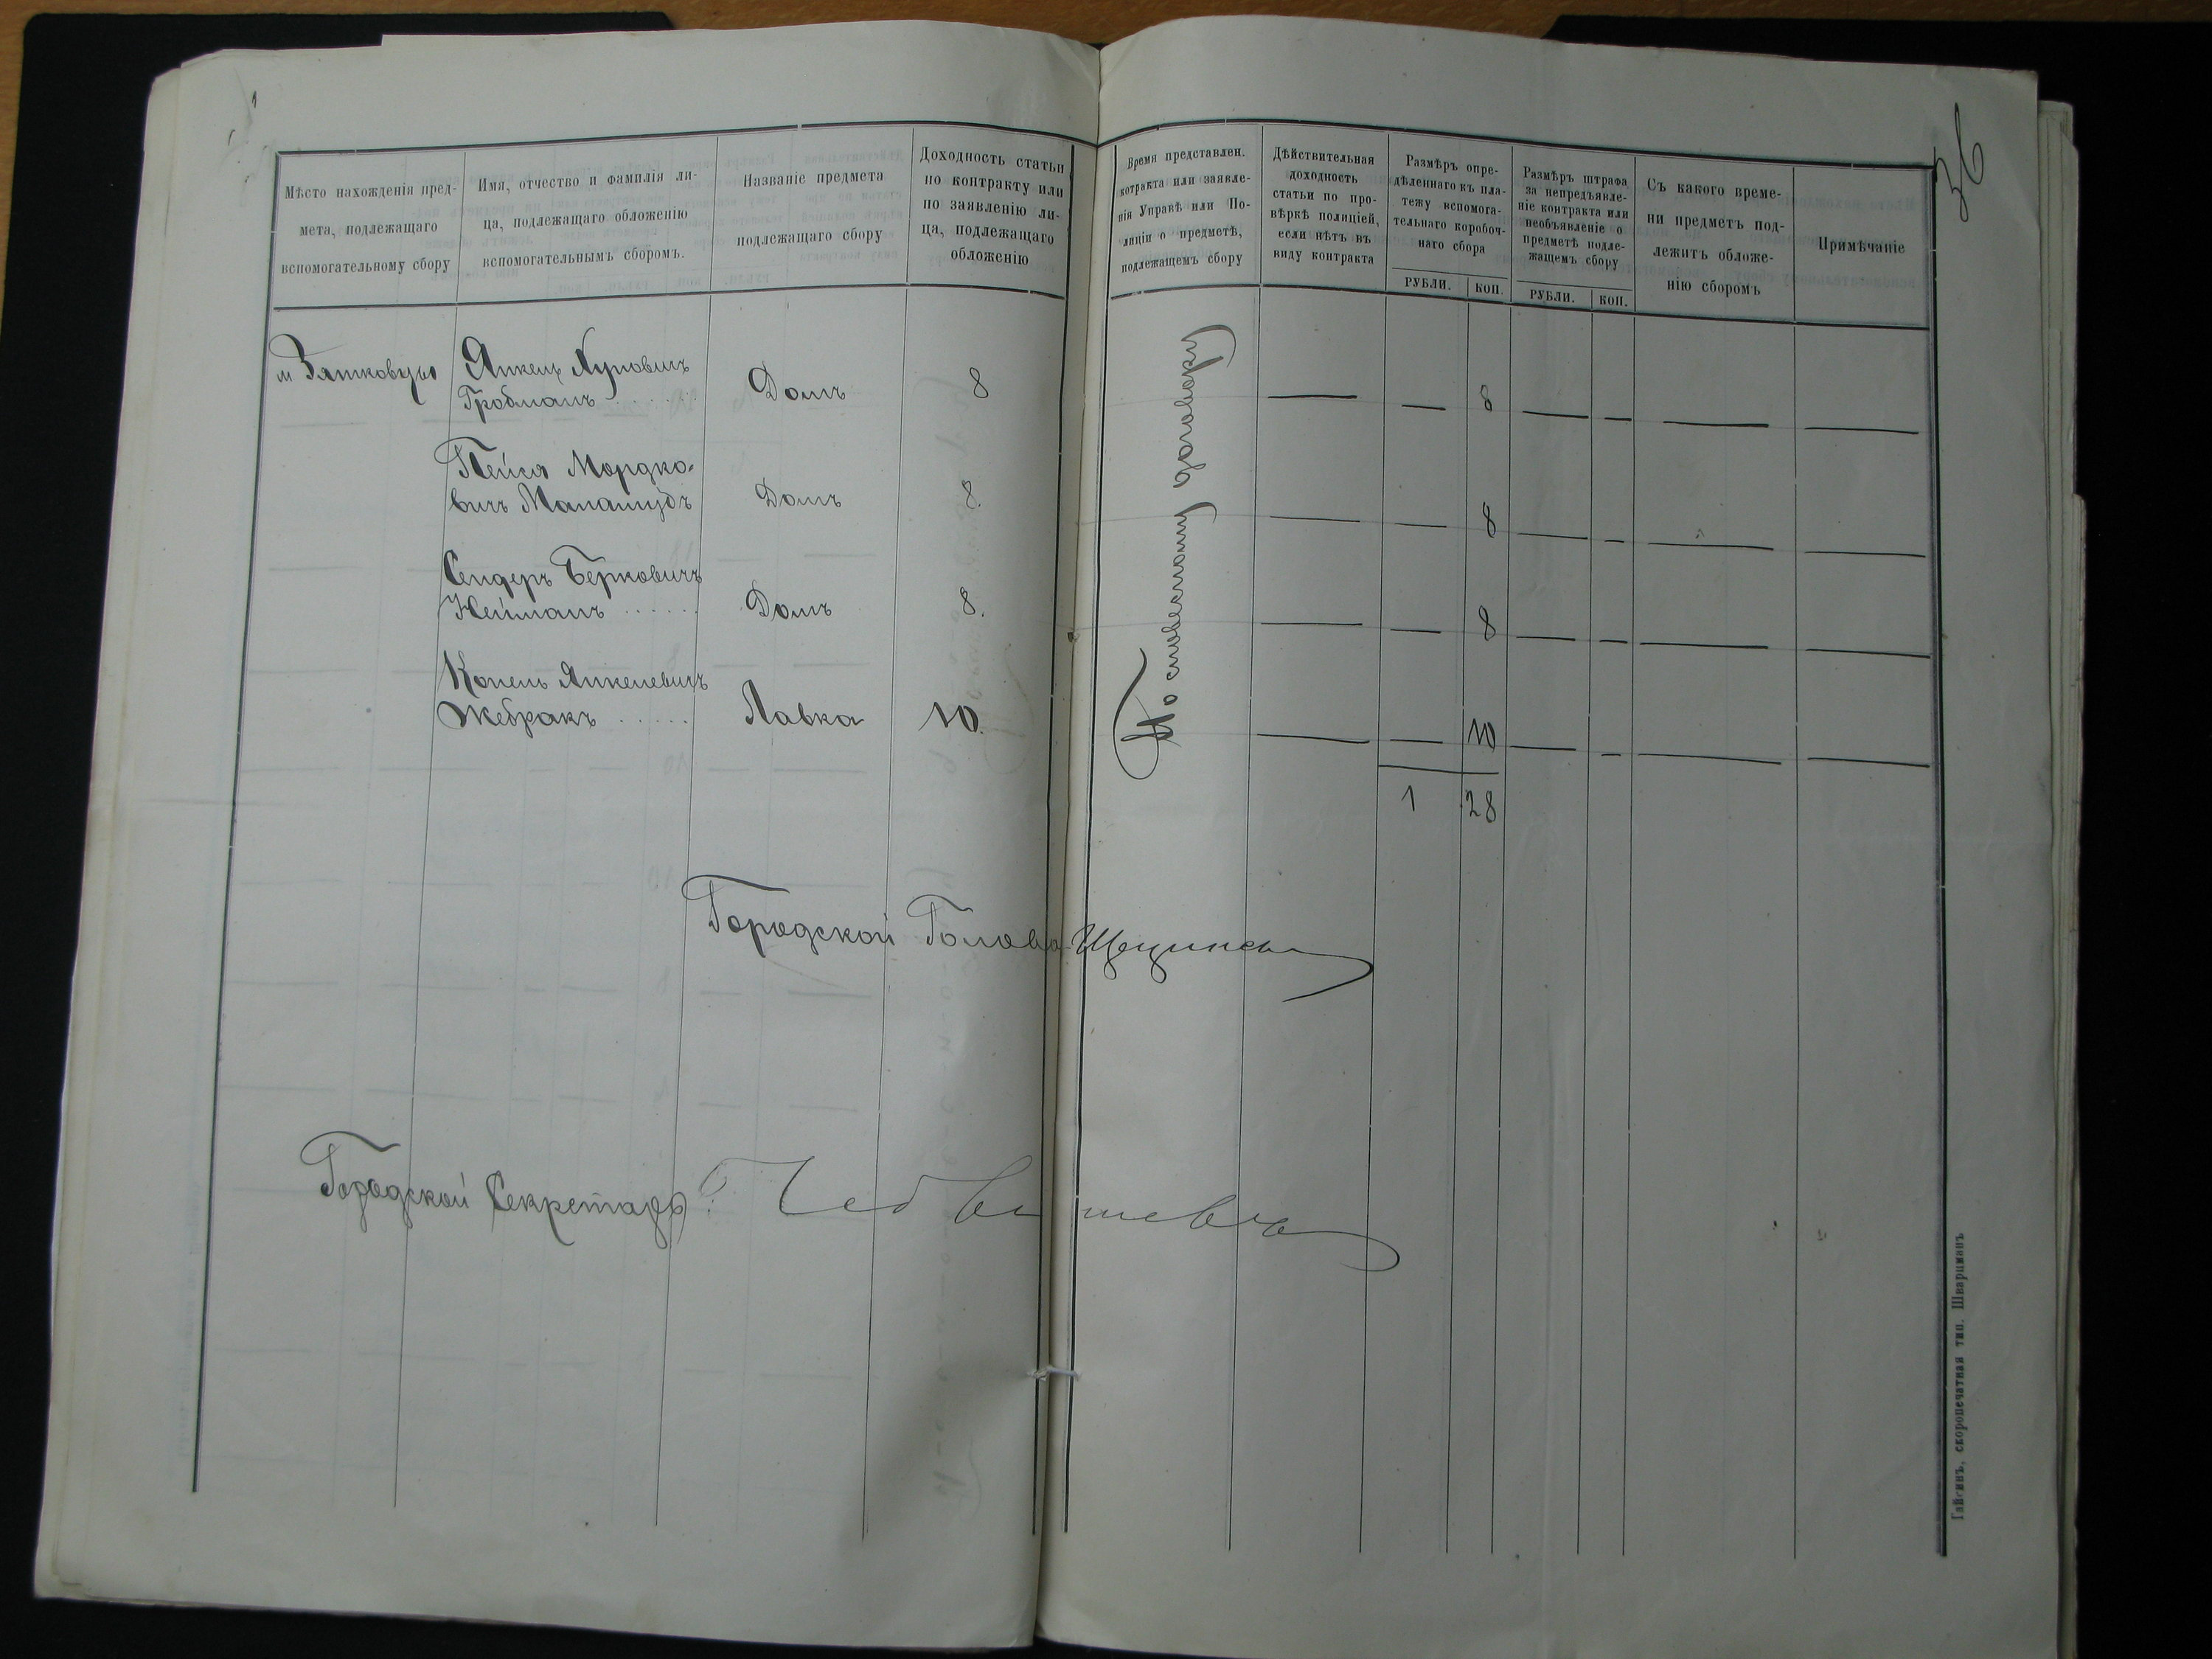 36
Мѣсто нахожденія пред-
мета, подлежащаго
вспомогательному сбору
Имя, отчество и фамилія ли-
ца, подлежащаго обложенію
вспомогательнымъ сборомъ.
Названіе предмета
подлежащаго сбору
Доходность статьи
по контракту или
по заявленію ли-
ца, подлежащаго
обложенію
Время представлен.
котракта или заявле-
нія Управѣ или По-
лиціи о предметѣ,
подлежащемъ сбору
Дѣйствительная
доходность
статьи по про-
вѣркѣ полиціей,
если нѣтъ въ
виду контракта
Размѣръ опре-
дѣленнаго къ пла-
тежу вспомога-
тельнаго коробоч-
наго сбора
РУБЛИ. КОП.
Размѣръ штрафа
за непредъявле-
ніе контракта или
необъявленіе о
предметѣ подле-
жащемъ сбору
РУБЛИ. КОП.
Съ какого време-
ни предметъ под-
лежитъ обложе-
нію сборомъ
Примѣчаніе
м Зятковцы Янкель Нуховичъ
Гробманъ Домъ 8 — — 8 — — — —
Пейся Мордко-
вичъ Маламудъ Домъ 8. — — 8 — — — —
Сендеръ Берковичъ
Нейманъ Домъ 8. — — 8 — — — —
Копель Янкелевичъ
Жебракъ Лавка 10. — — 10 — — — —
По словесному договору
1 28
Городской Голова
Городской Секретарь
Гайсинъ, скоропечатная тип. Шварцманъ